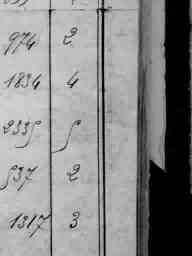 974 2
1834 4
2335 5
537 2
1317 3